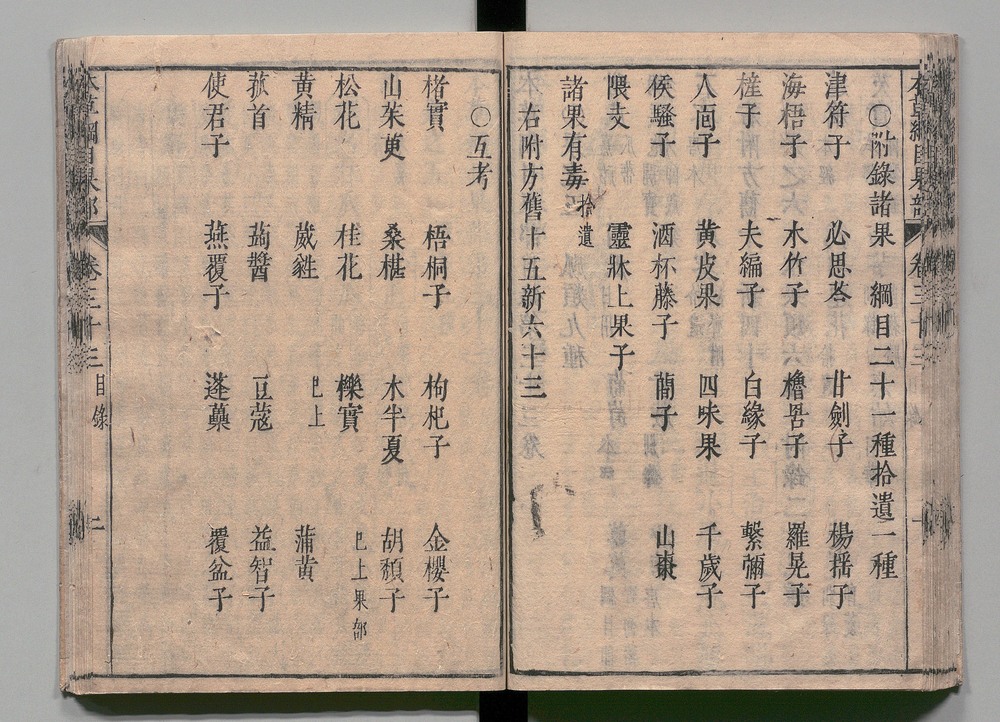 本草綱目果部 卷三十三
〇附錄諸果 綱目二十一種拾遺一種
津符子 必思荅 甘劍子 楊揺子
海梧子 木竹子 櫓罟子 羅晃子
㮑子 夫編子 白緣子 繫彌子
人面子 黄皮果 四味果 千歲子
侯騷子 酒杯藤子 䕞子 山棗
隈支 靈牀上果子
諸果有毒拾遺
右附方舊十五新六十三
〇互考
楮實 梧桐子 枸杞子 金櫻子
山茱萸 桑椹 木半夏 胡頽子
松花 桂花 櫟實 已上果部
黄精 葳蕤 已上 蒲黄
菰首 蒟醬 豆蔻 益智子
使君子 燕覆子 蓬虆 覆盆子
本草綱目果部 卷三十三 目錄 二